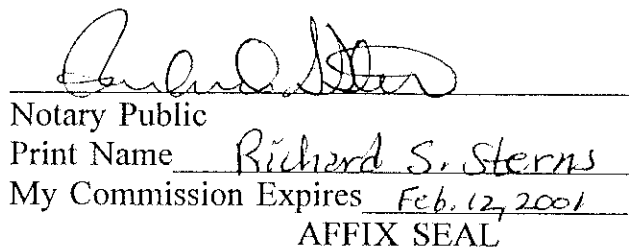 Notary Public
Print Name Richard S. Sterns
My Commission Expires Feb. 12, 2001
AFFIX SEAL